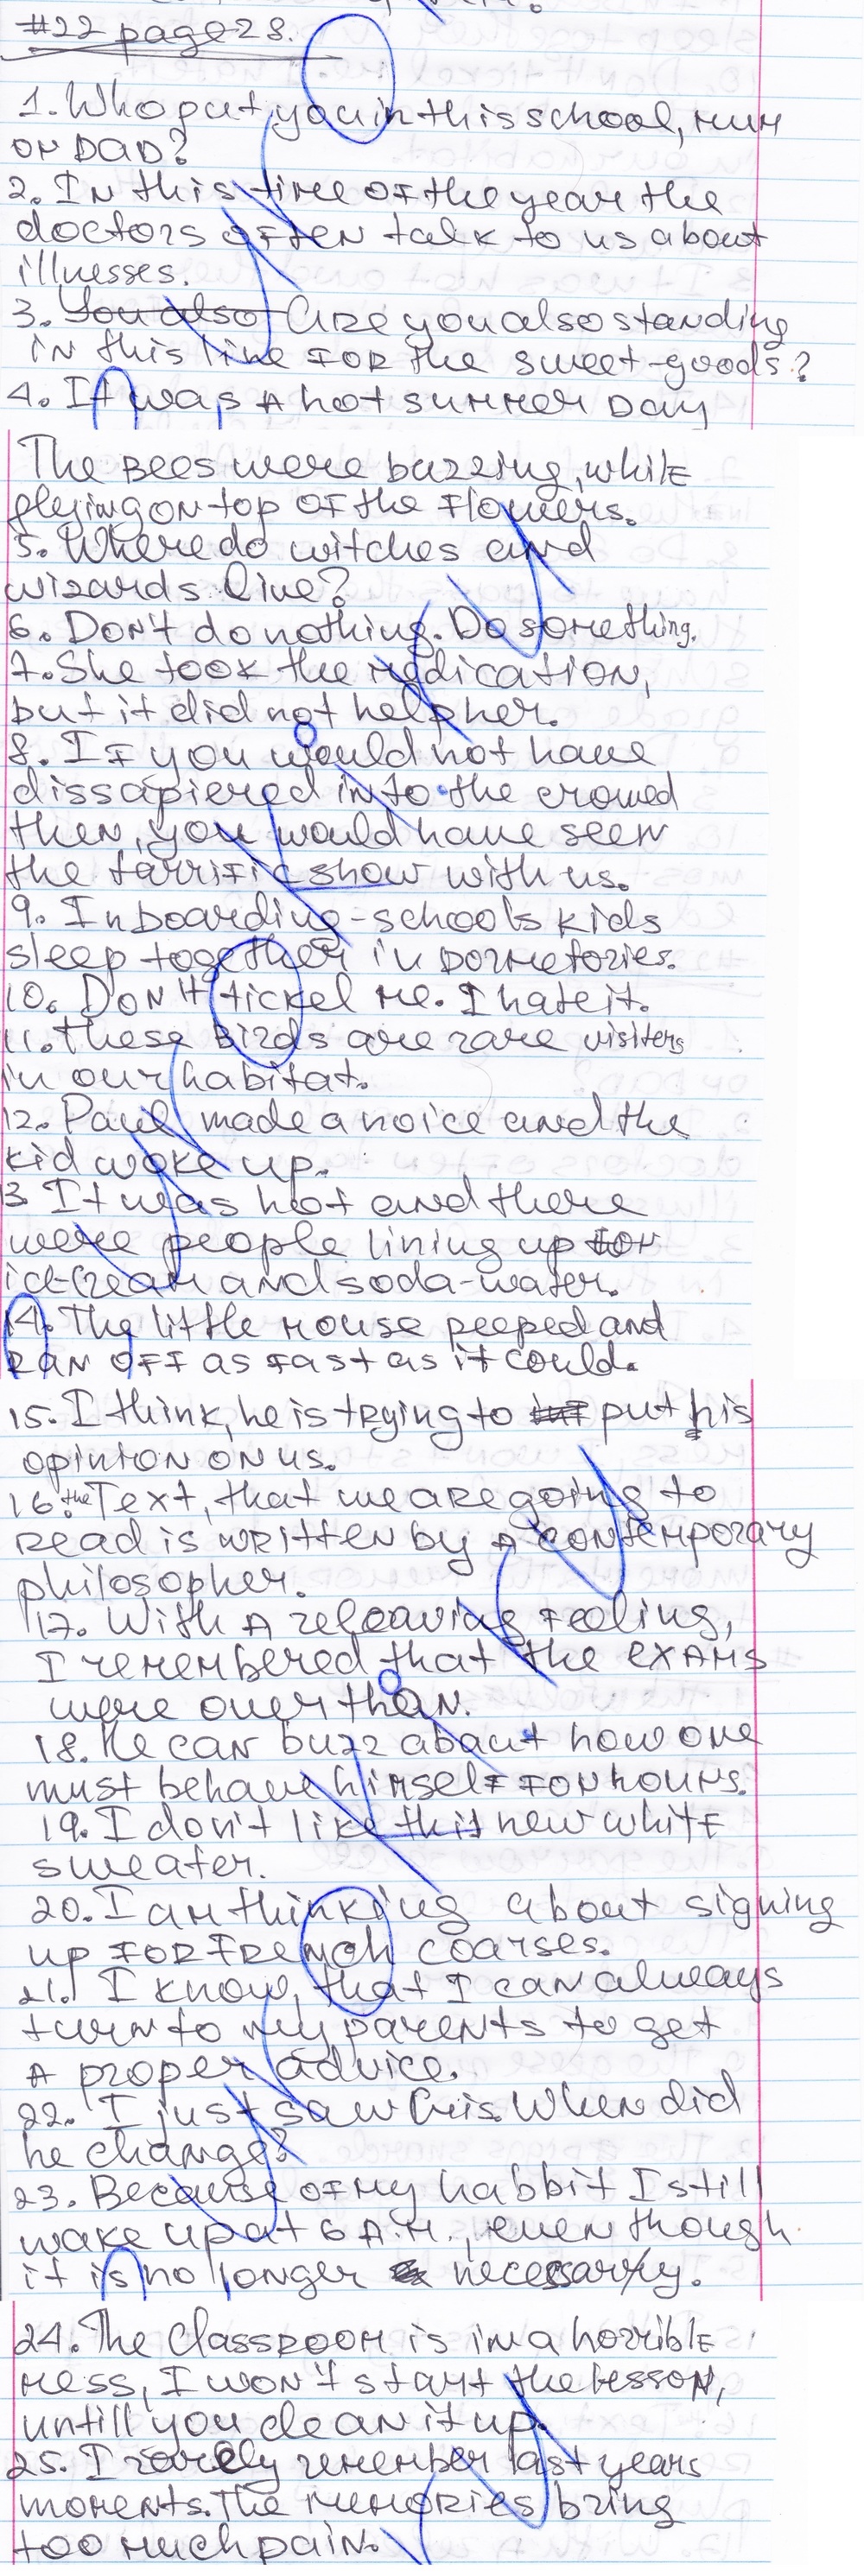 #22 page 28.
1. Who put you in this school, mum
or Dad?
2. In this time of the year the
doctors often talk to us about
illnesses.
3. You also Are you also standing
in this line for the sweet-goods?
4. It was A hot summer Day
The Bees were buzzing, while
flying on top of the flowers.
5. Where do witches and
wizards live?
6. Don't do nothing. Do something.
7. She took the medication,
but it did not help her.
8. If you would not have
dissapiered into the crowed
then, you would have seen
the tarrific show with us.
9. In boarding-schools kids
sleep together in dormetories.
10. Don't tickel me. I hate it.
11. These Birds are rare visiters
in our habitat.
12. Paul made a noice and the
kid woke up.
13 It was hot and there
were people lining up for
ice-cream and soda-water.
14. The little mouse peeped and
ran off as fast as it could.
15. I think, he is trying to put his
opinion on us.
16. the Text, that we are going to
read is written by A contemporary
philosopher.
17. With A releaving feeling,
I remembered that the exams
were over than.
18. He can buzz about how one
must behave himself for hours.
19. I don't like this new white
sweater.
20. I am thinking about signing
up for French coarses.
21. I know, that I can always
turn to my parents to get
A proper advice.
22. I just saw Cris. When did
he change?
23. Because of my habbit I still
wake up at 6 A.M., even though
it is no longer necessarry.
24. The Classroom is in a horrible
mess, I won't start the lesson,
untill you clean it up.
25. I rarely remember last years
moments. The memories bring
too much pain.